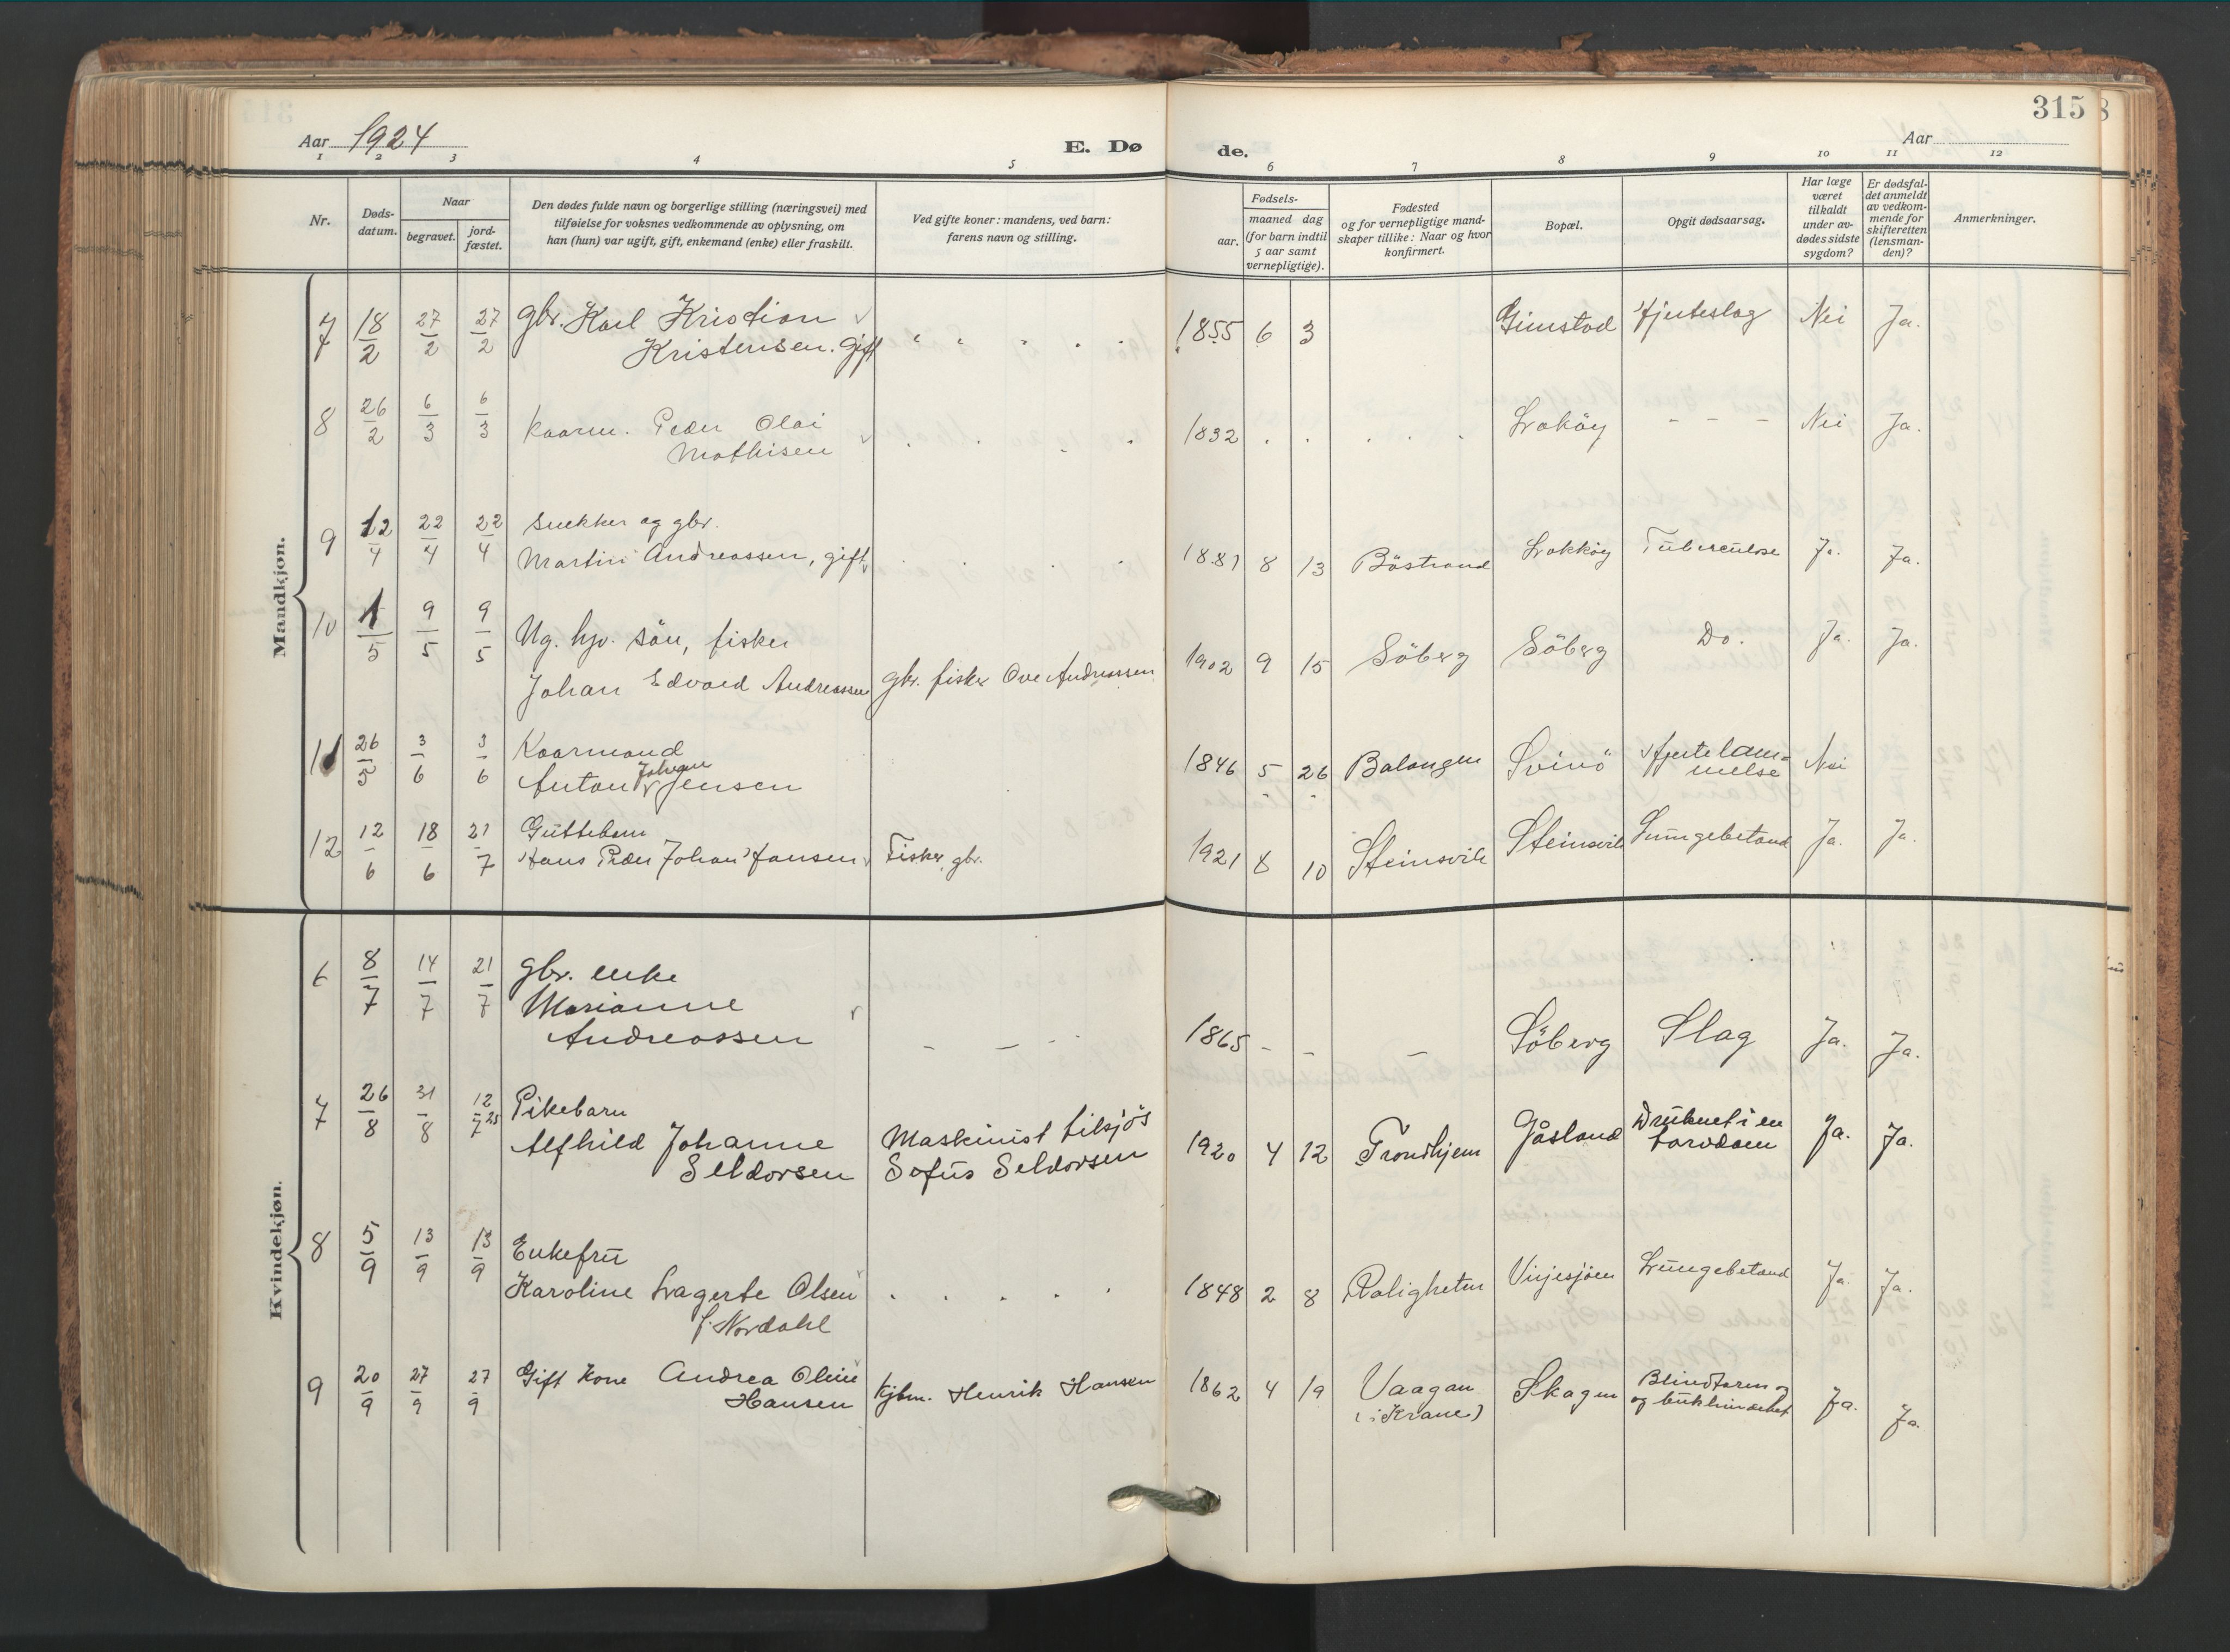 315
Aar 1924
E. Dø
de.
Aar
1 2 3 4 5 6 7 8 9 10 11 12
Nr.
Døds-
datum.
Naar
begravet.
jord-
fæstet.
Den dødes fulde navn og borgerlige stilling (næringsvei) med
tilføielse for voksnes vedkommende av oplysning, om
han (hun) var ugift, gift, enkemand (enke) eller fraskilt.
Ved gifte koner: mandens, ved barn:
farens navn og stilling.
Fødsels-
aar.
maaned dag
(for barn indtil
5 aar samt
vernepligtige).
Fødested
og for vernepligtige mand-
skaper tillike: Naar og hvor
konfirmert.
Bopæl.
Opgit dødsaarsag.
Har læge
været
tilkaldt
under av-
dødes sidste
sygdom?
Er dødsfal-
det anmeldt
av vedkom-
mende for
skifteretten
(lensman-
den)?
Anmerkninger.
Mandkjøn.
7 18/2 27/2 27/2 gbr. Karl Kristian
Kristensen. gift
1855 6 3 Gimstad Hjerteslag Nei Ja.
8 26/2 6/3 6/3 Kaarm. Peder Olai
Mathisen
1832 Lakøy - - - Nei Ja.
9 12/4 22/4 22/4 Snekker og gbr.
Martin Andreassen, gift
1881 8 13 Böstrand Lakköy Tuberculose Ja. Ja.
10 1/5 9/5 9/5 Ug. hjv. sön, fisker
Johan Edvard Andreassen gbr. fisker Ove Andreassen
1902 9 15 Söberg Söberg Do. Ja. Ja.
11 26/5 3/6 3/6 Kaarmand
Anton Johan Jensen
1846 5 26 Balangen Svinö Hjertelam-
melse Nei
12 12/6 18/6 21/7 Guttebarn
Hans Peder Johan Jansen Fisker, gbr.
1921 8 10 Steinsvik Steinsvik Lungebetænd Ja. Ja.
Kvindekjøn.
6 8/7 14/7 21/7 gbr. enke
Marianne
Andreassen
1865 - - - Söberg Slag Ja. Ja.
7 26/8 31/8 12/7 25 Pikebarn
Alfhild Johanne
Seldorsen
Maskinist tilsjös
Sofus Seldorsen
1920 4 12 Trondhjem Gåsland Druknet i en
torvdam Ja. Ja.
8 5/9 13/9 13/9 Enkefru
Karoline Lagerte Olsen
f. Nordahl
1848 2 8 Roligheten Vinjesjöen Lungebetænd Ja. Ja.
9 20/9 27/9 27/9 Gift kone Andrea Oline
Hansen
kjbm. Henrik Hansen
1862 4 19 Vaagan
(i Krane)
Skagen Blindtarm og
og bukhindebet Ja. Ja.